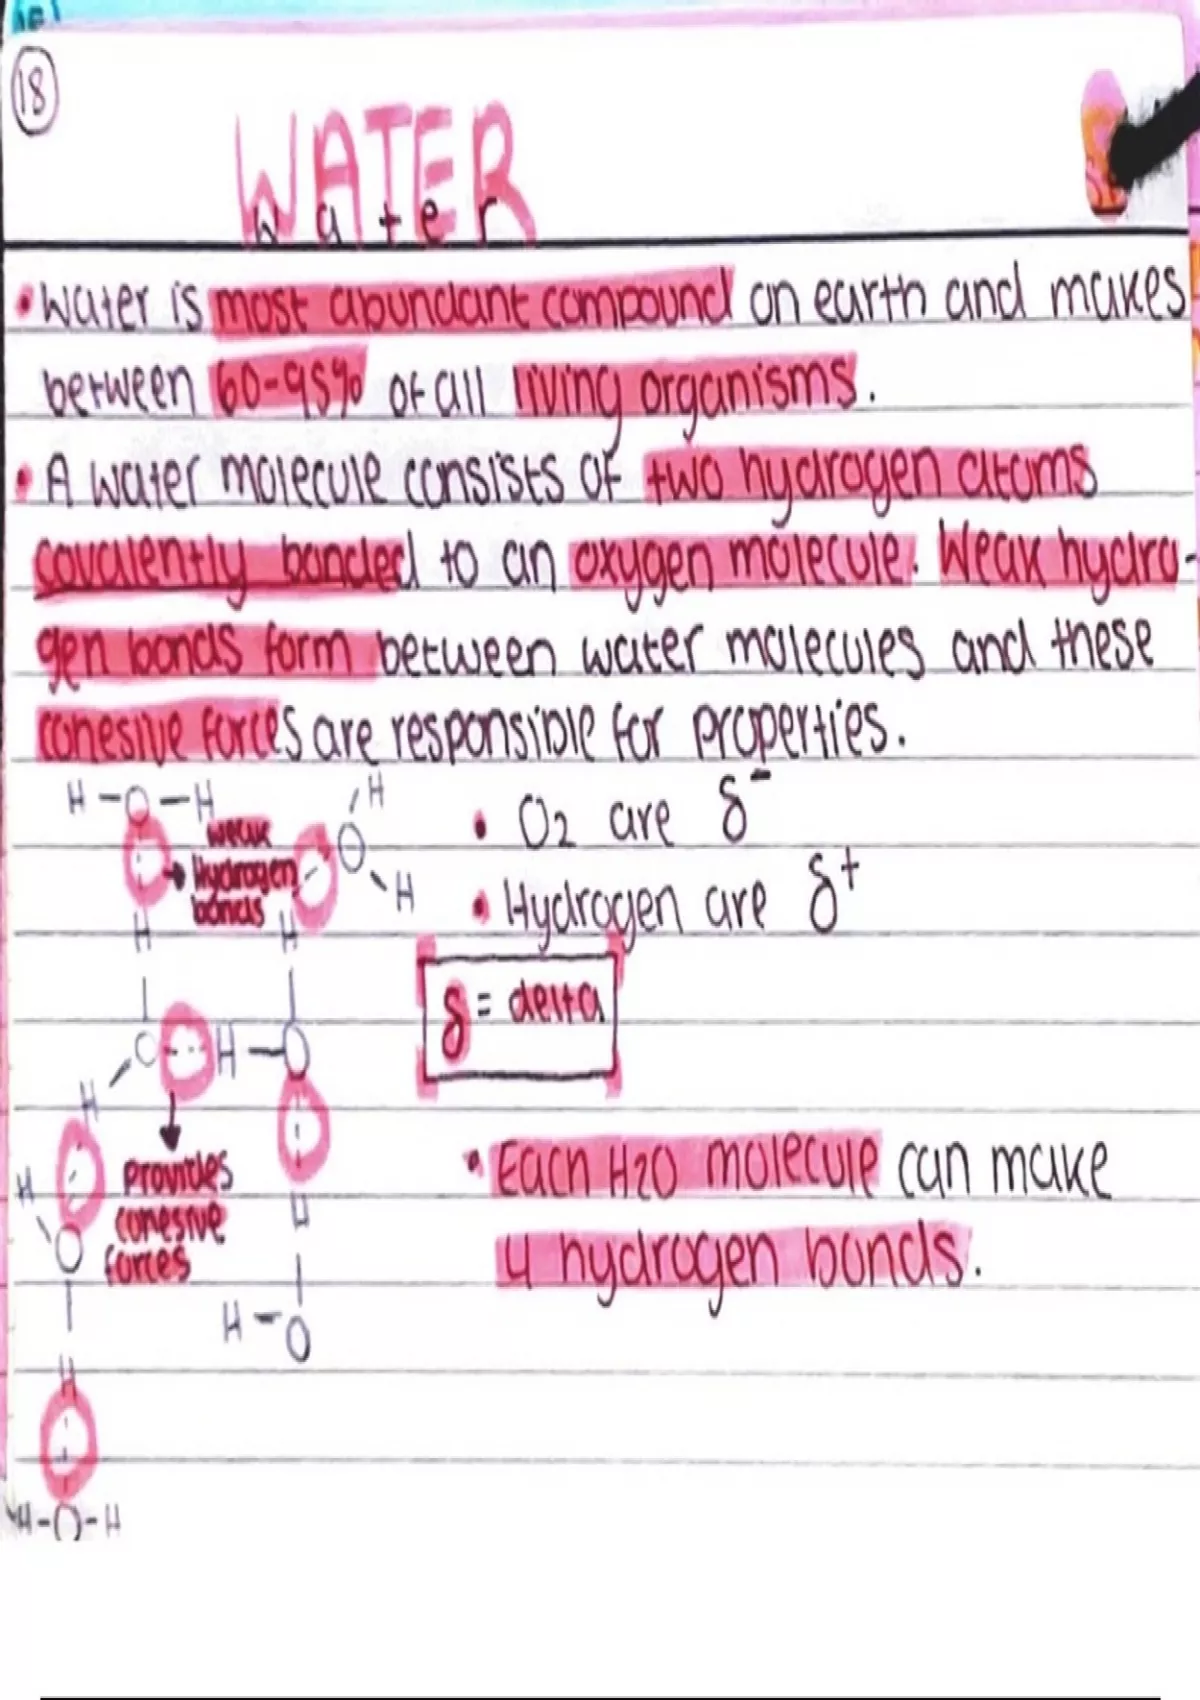 18
WATER
water
• Water is most abundant compound on earth and makes
between 60-95% of all living organisms.
• A water molecule consists of two hydrogen atoms
covalently bonded to an oxygen molecule. Weak hydro-
gen bonds form between water molecules and these
cohesive forces are responsible for properties.
H-O-H
weak
Hydrogen
bonds
H
O
H
• O2 are δ-
• Hydrogen are δ+
H
H
δ = delta
O
H-O
H
provides
cohesive
forces
H
O
• Each H2O molecule can make
4 hydrogen bonds.
H
H-O
H
H-O-H